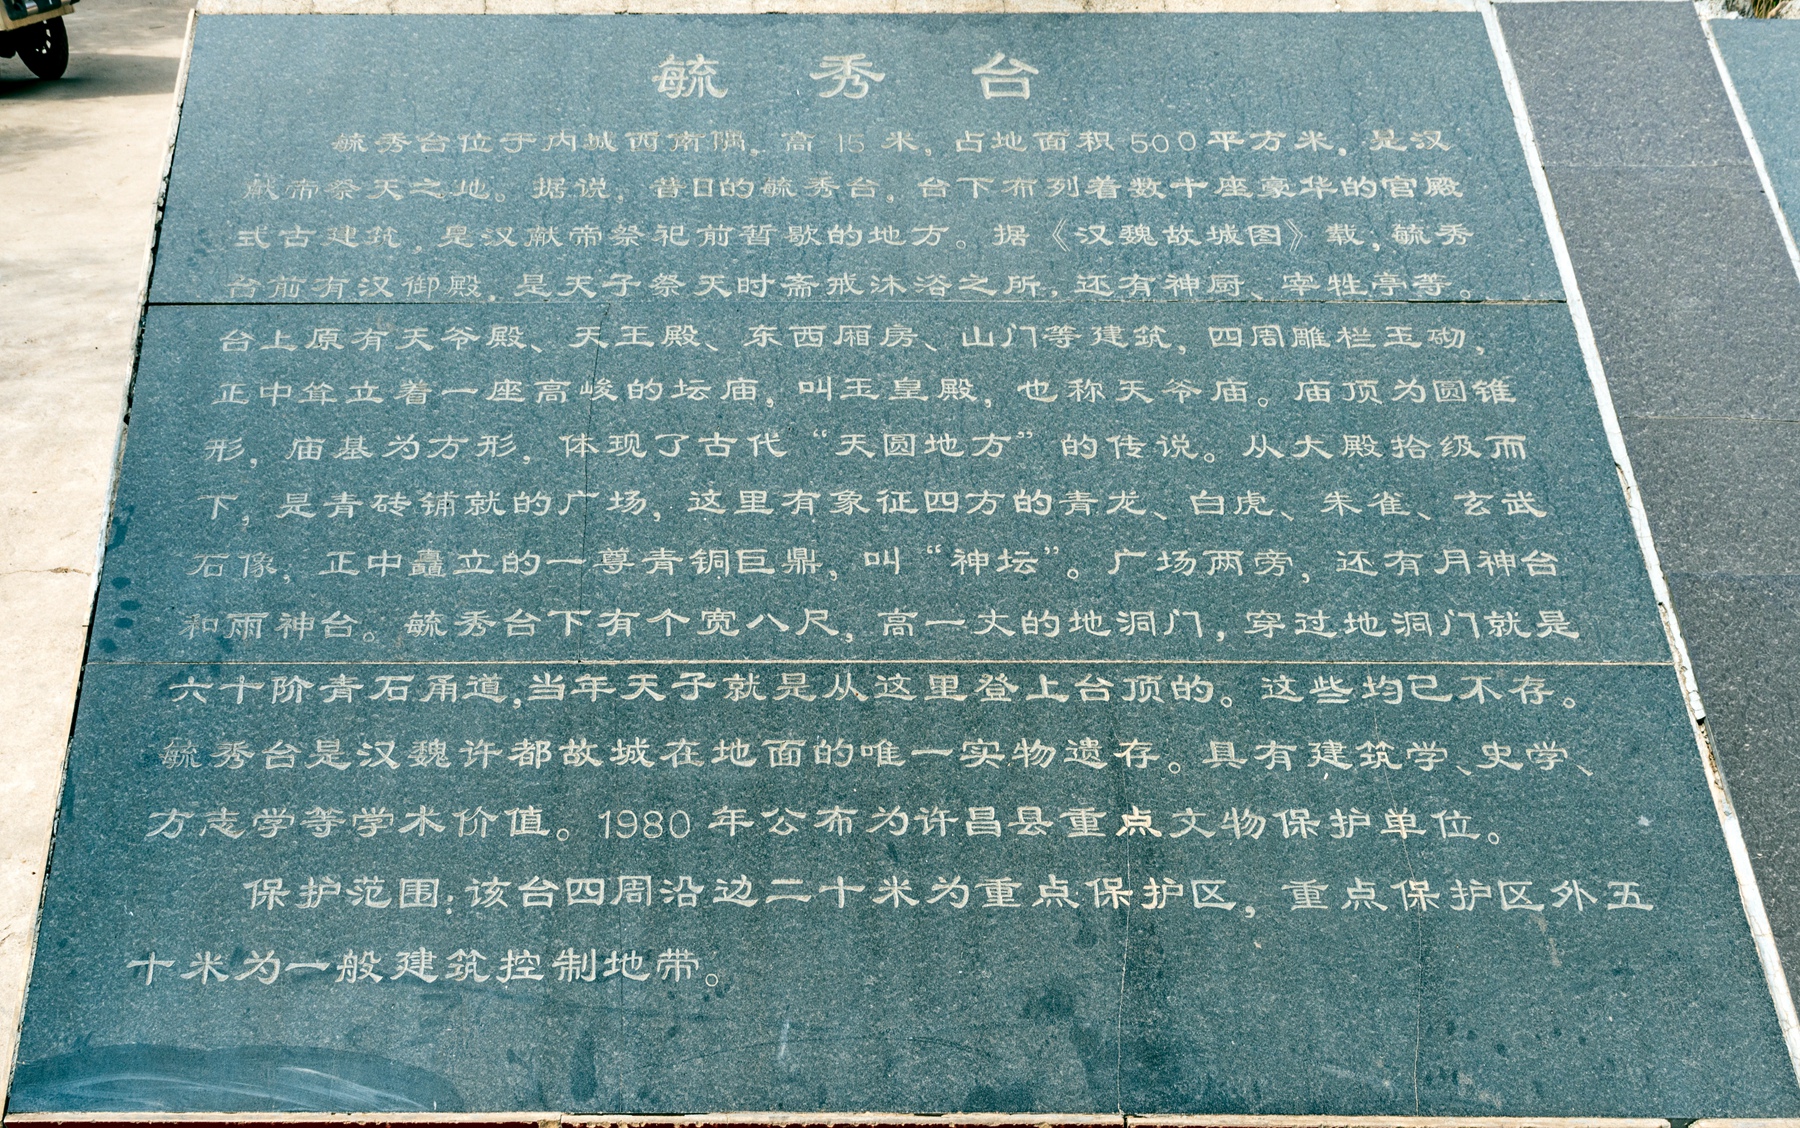 毓秀台
毓秀台位于内城西南隅，高15米，占地面积500平方米，是汉
献帝祭天之地。据说，昔日的毓秀台，台下布列着数十座豪华的宫殿
式古建筑，是汉献帝祭祀前暂歇的地方。据《汉魏故城图》载，毓秀
台前有汉御殿，是天子祭天时斋戒沐浴之所，还有神厨、宰牲亭等。
台上原有天爷殿、天王殿、东西厢房、山门等建筑，四周雕栏玉砌，
正中耸立着一座高峻的坛庙，叫玉皇殿，也称天爷庙。庙顶为圆锥
形，庙基为方形，体现了古代“天圆地方”的传说。从大殿拾级而
下，是青砖铺就的广场，这里有象征四方的青龙、白虎、朱雀、玄武
石像，正中矗立的一尊青铜巨鼎，叫“神坛”。广场两旁，还有月神台
和雨神台。毓秀台下有个宽八尺，高一丈的地洞门，穿过地洞门就是
六十阶青石甬道，当年天子就是从这里登上台顶的。这些均已不存。
毓秀台是汉魏许都故城在地面的唯一实物遗存。具有建筑学、史学、
方志学等学术价值。1980年公布为许昌县重点文物保护单位。
保护范围：该台四周沿边二十米为重点保护区，重点保护区外五
十米为一般建筑控制地带。